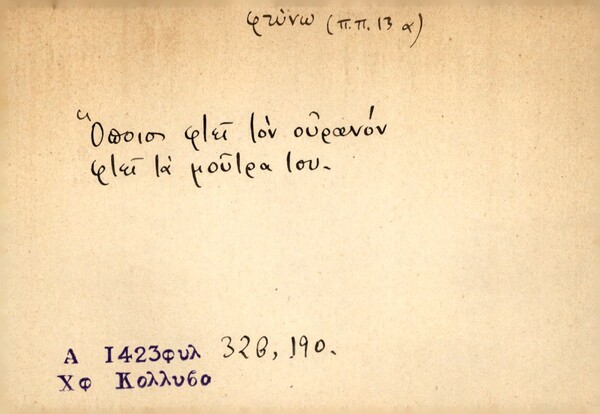 φτύνω (π.π. 13 α)
Ὅποιος φτεῖ τὸν οὐρανόν
φτεῖ τὰ μοῦτρα του.
Α 1423φυλ 32β, 190.
Χφ Κολλυβο